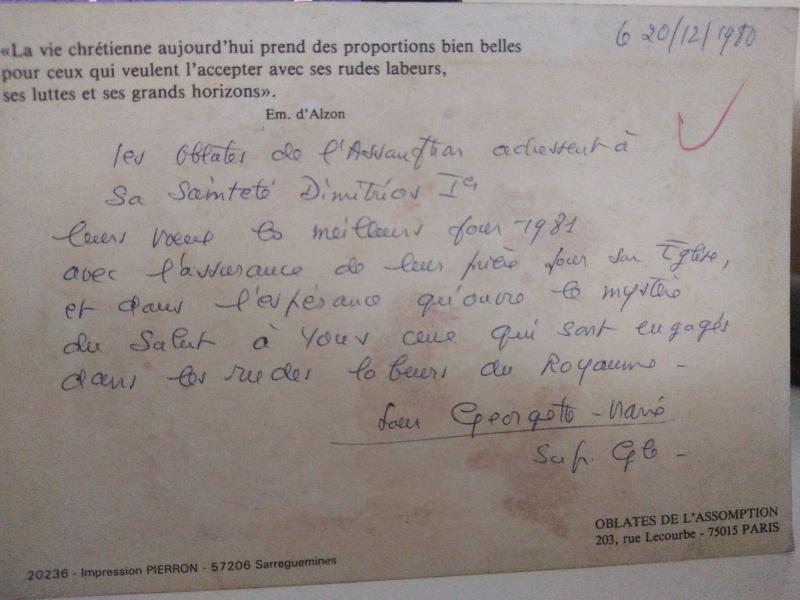 «La vie chrétienne aujourd'hui prend des proportions bien belles
pour ceux qui veulent l'accepter avec ses rudes labeurs,
ses luttes et ses grands horizons».
Em. d'Alzon
le 20/12/1980
les Oblates de l'Assomption adressent à
Sa Sainteté Dimitrios Ier
leurs vœux les meilleurs pour 1981
avec l'assurance de leur prière pour son Église,
et dans l'espérance qu'ouvre le mystère
du Salut à tous ceux qui sont engagés
dans les rudes labeurs du Royaume -
Sœur Georgette-Marie
Sup. Gle -
OBLATES DE L'ASSOMPTION
203, rue Lecourbe - 75015 PARIS
20236 - Impression PIERRON - 57206 Sarreguemines